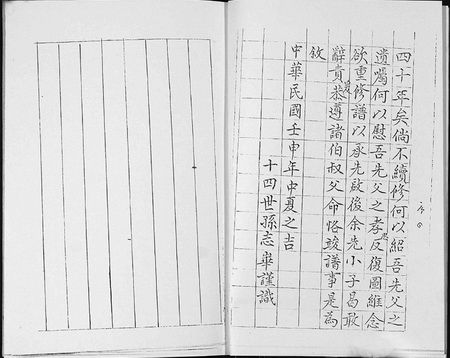 四十年矣倘不續修何以紹吾先父之
遺囑何以慰吾先父之孝思反復圖維念
欲重修譜以承先啟後余先小子曷敢
辭責爰恭遵諸伯叔父命恪竣譜事是為
敘
中華民國壬申年中夏之吉
十四世孫志華謹識